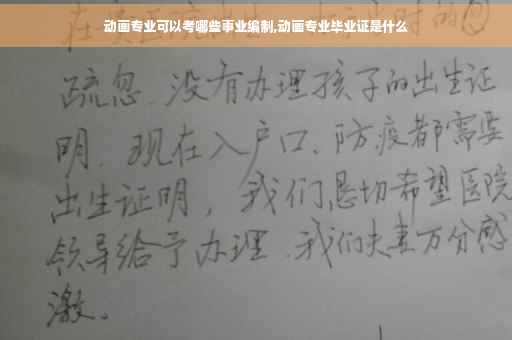 动画专业可以考哪些事业编制,动画专业毕业证是什么
疏忽、没有办理孩子的出生证
明、现在入户口、防疫都需要
出生证明，我们恳切希望医院
领导给予办理、我们夫妻万分感
激。